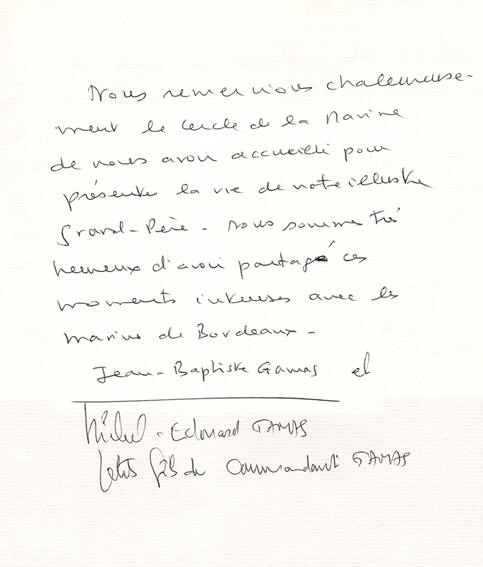 Nous remercions chaleureuse-
ment le Cercle de la Marine
de nous avoir accueilli pour
présenter la vie de notre illustre
Grand-Père. Nous sommes très
heureux d'avoir partagé ces
moments intenses avec les
marins de Bordeaux -
Jean-Baptiste Gamas et
Michel-Edouard GAMAS
Petits fils du Commandant GAMAS